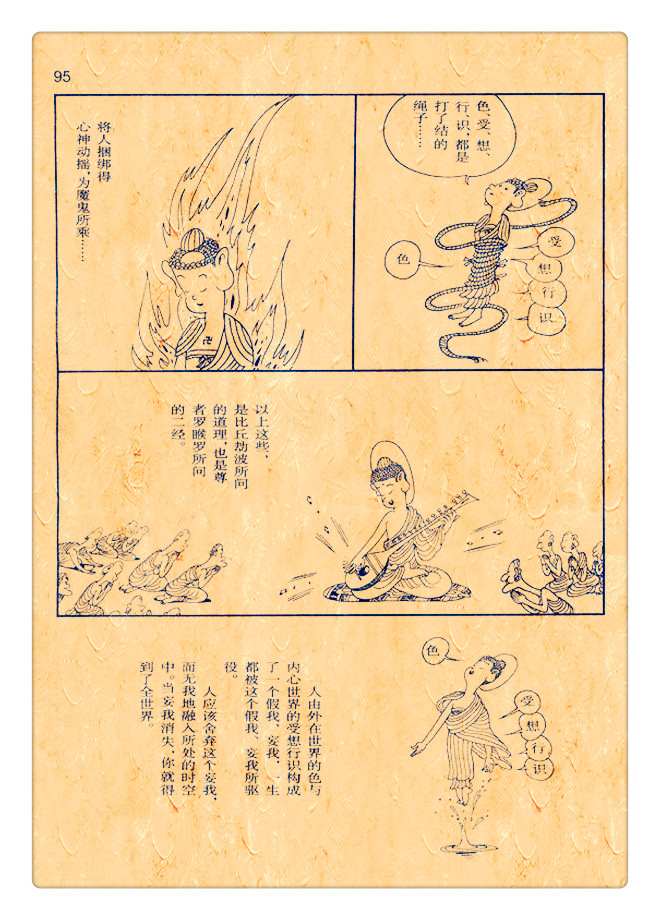 95
色、受、想、
行、识,都是
打了结的
绳子……
色
受
想
行
识
将人捆绑得
心神动摇,为魔鬼所乘……
卍
以上这些,
是比丘劫波所问
的道理,也是尊
者罗睺罗所问
的二经。
色
受
想
行
识
人由外在世界的色与
内心世界的受想行识构成
了一个假我、妄我,一生
都被这个假我、妄我所驱
役。
人应该舍弃这个妄我,
而无我地融入所处的时空
中。当妄我消失,你就得
到了全世界。